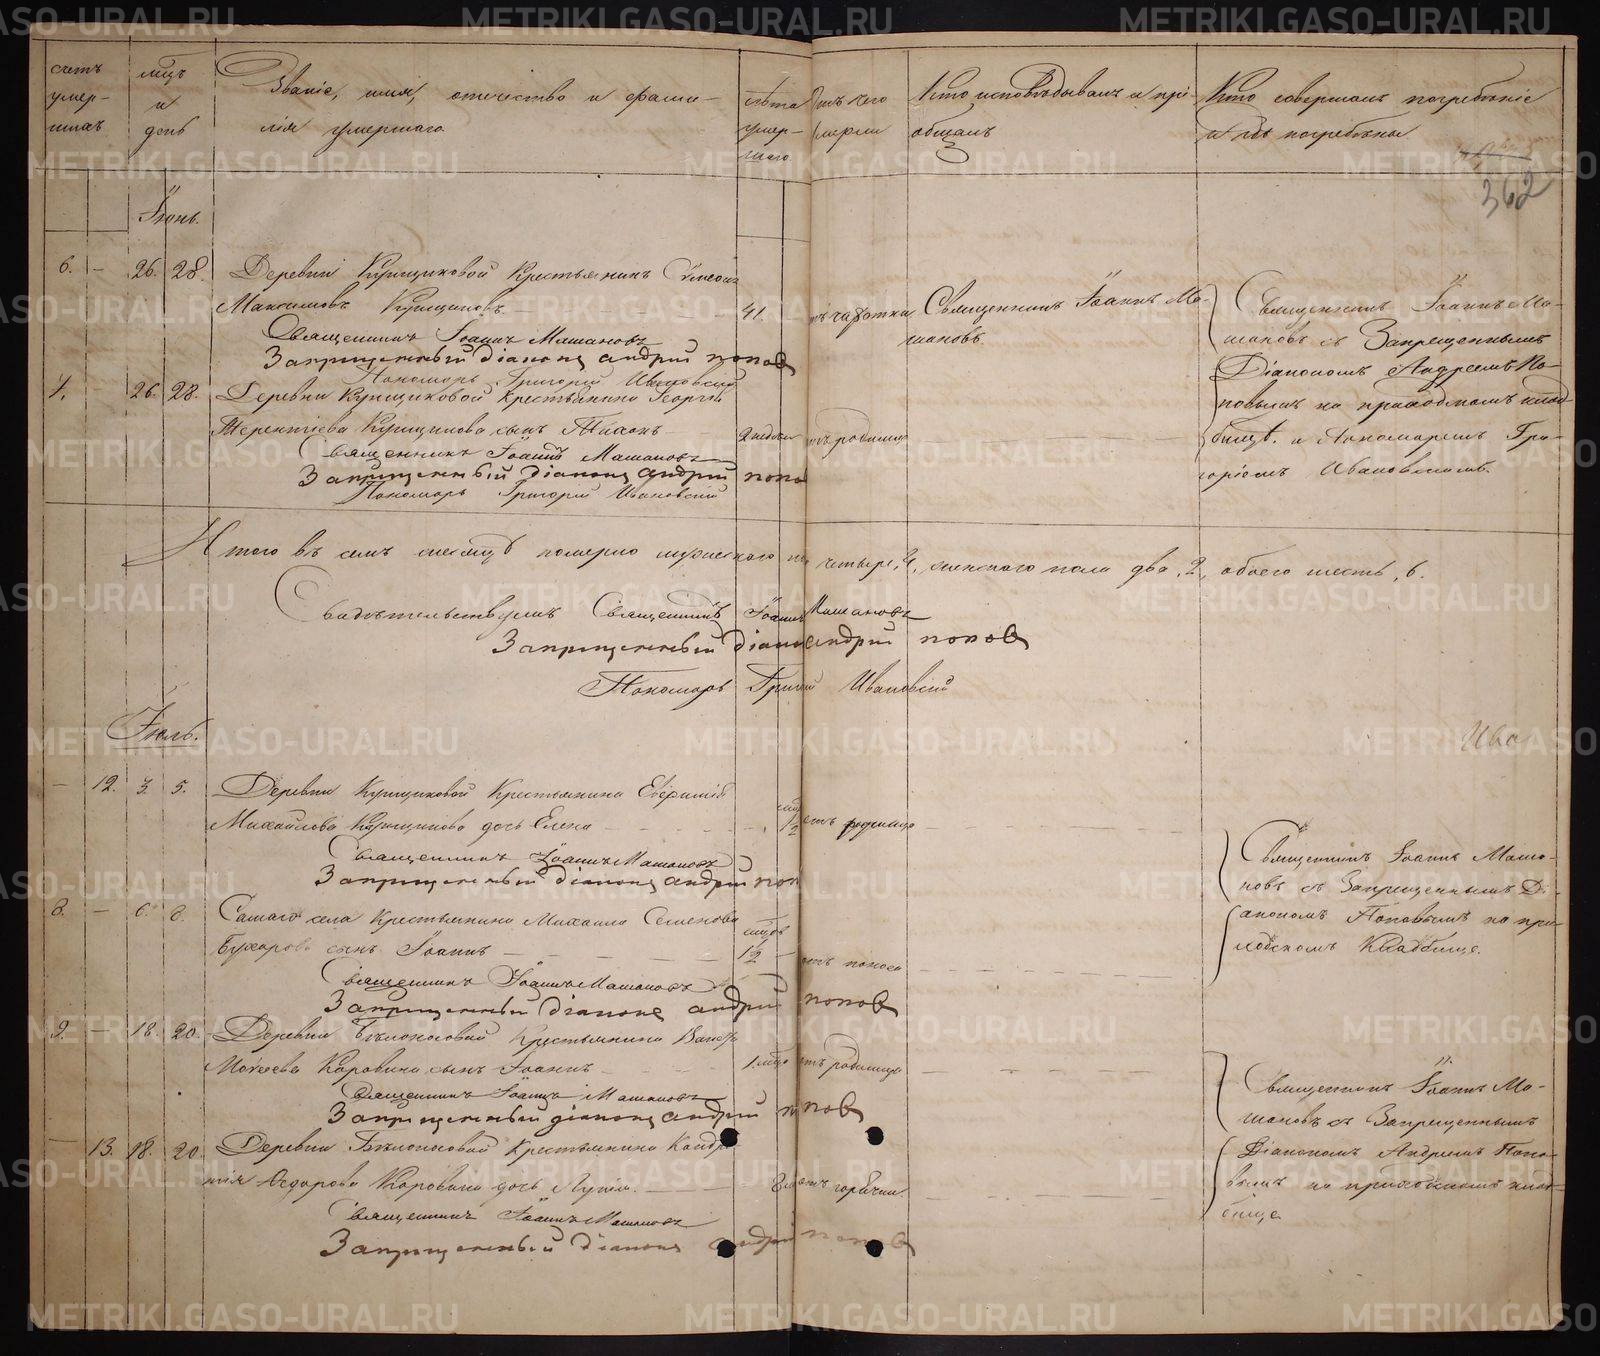 счетъ умер-шихъ
мцъ и день
Званіе, имя, отечество и фами-
лія умершаго.
лѣта умер-шаго
Отъ чего умерли
Кто исповѣдывалъ и прі-
общалъ
Кто совершалъ погребеніе
и гдѣ погребены.
362
Іюнь.
6. — 26. 28. Деревни Купщиковой Крестьянинъ Сѵмеонъ
Максимовъ Купщиковъ 41. отъ чахотки
Священникъ Іоаннъ Ма-
шановъ
Священникъ Іоаннъ Ма-
шановъ съ Запрещеннымъ
Діакономъ Андреемъ По-
повымъ на приходскомъ клад-
бищѣ. и Пономаремъ Гри-
горіемъ Ивановскимъ.
Священникъ Іоаннъ Машановъ
Запрещенный діаконъ андрій попов
Пономарь Григорій Ивановскій
7. 26. 28. Деревни Купщиковой крестьянина Георгія
Терентіева Купщикова сынъ Тихонъ 2 недѣли отъ родимца
Священникъ Іоаннъ Машановъ
Запрещенный діаконъ андрій попо
Пономарь Григорій Ивановскій
Итого въ семъ месяцѣ померло мужескаго по четыре, 4, женскаго пола два, 2, обоего шесть, 6.
Свидѣтельствуемъ Священникъ Іоаннъ Машановъ
Запрещенный діаконъ андрій попов
Пономарь Григорій Ивановскій
Іюль.
Ива
— 12. 3. 5. Деревни Купщиковой Крестьянина Евфимія
Михайлова Купщикова дочь Елена 1/2 отъ родимца
Священникъ Іоаннъ Машановъ
Запрещенный діаконъ андрій поп
Священникъ Іоаннъ Маша-
новъ съ Запрещеннымъ Ді-
акономъ Поповымъ на при-
ходскомъ Кладбище.
8. — 6. 8. Самаго села Крестьянина Михаила Семенова
Бухарова сынъ Іоаннъ мцовъ 12 отъ поноса
Священникъ Іоаннъ Машановъ
Запрещенный діаконъ андрій попов
9. — 18. 20. Деревни Бѣлоносовой Крестьянина
Моѵсеева Коровина сынъ Іоаннъ 1. мцъ отъ родимца
Священникъ Іоаннъ Машановъ
Запрещенный діаконъ андрій попов
Священникъ Іоаннъ Ма-
шановъ съ Запрещеннымъ
Діакономъ Андреемъ Попо-
вымъ на приходскомъ клад-
бище
— 13. 18. 20. Деревни Бѣлоносовой Крестьянина Кондра-
тія Ѳедорова Коровина дочь Лукія. отъ горячки.
Священникъ Іоаннъ Машановъ
Запрещенный діаконъ андрій попов
METRIKI.GASO-URAL.RU